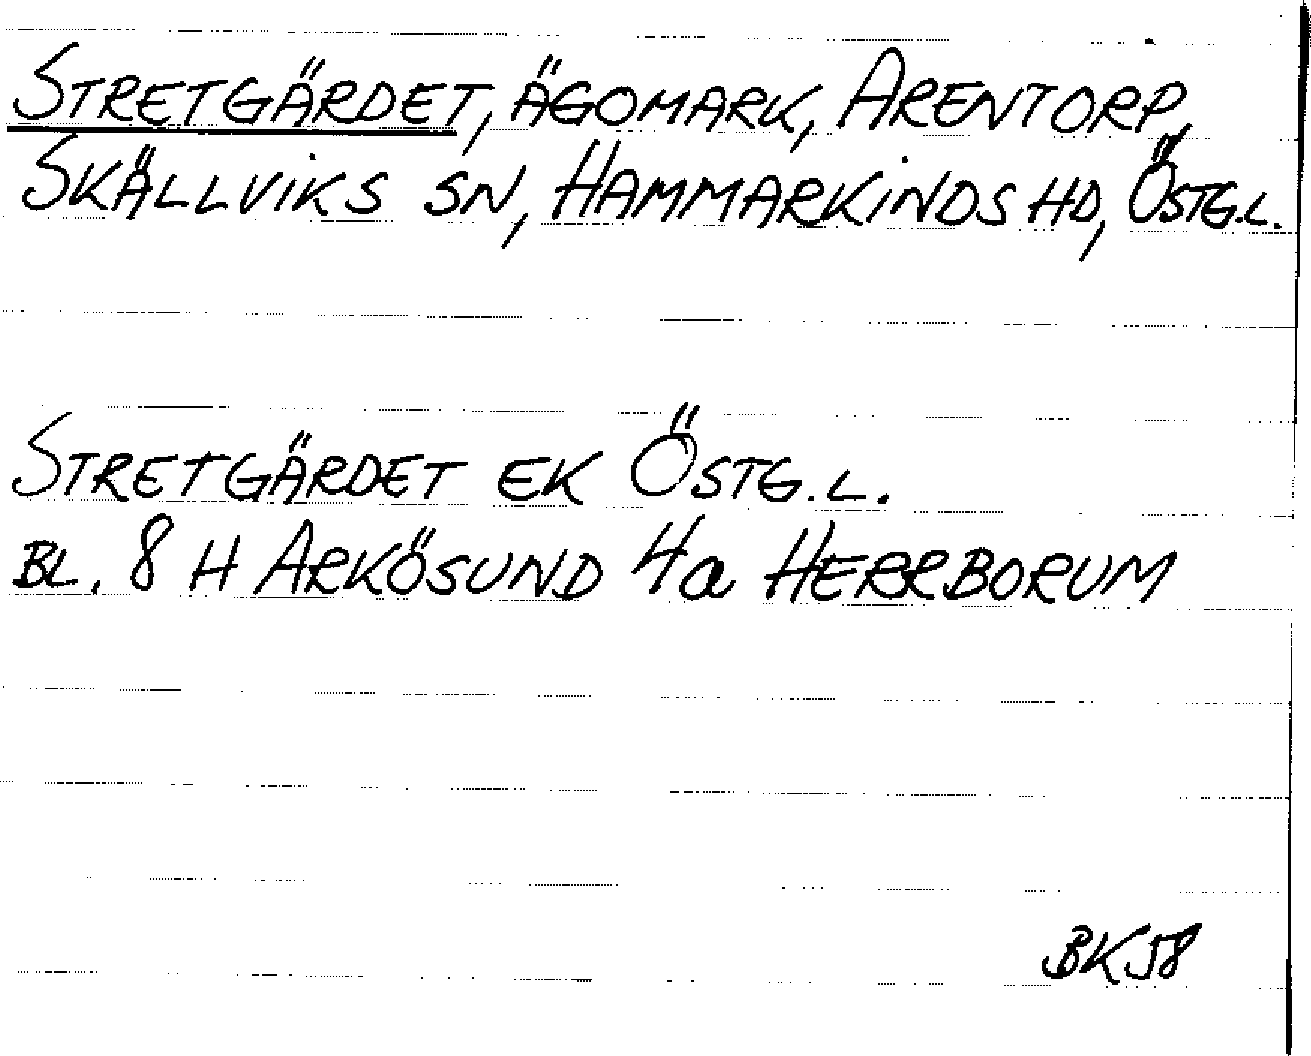 STRETGÄRDET, ÄGOMARK, ARENTORP,
SKÄLLVIKS SN, HAMMARKINDS HD, ÖSTG.L.
STRETGÄRDET EK ÖSTG.L.
BL. 8 H ARKÖSUND 4a HERRBORUM
BK58